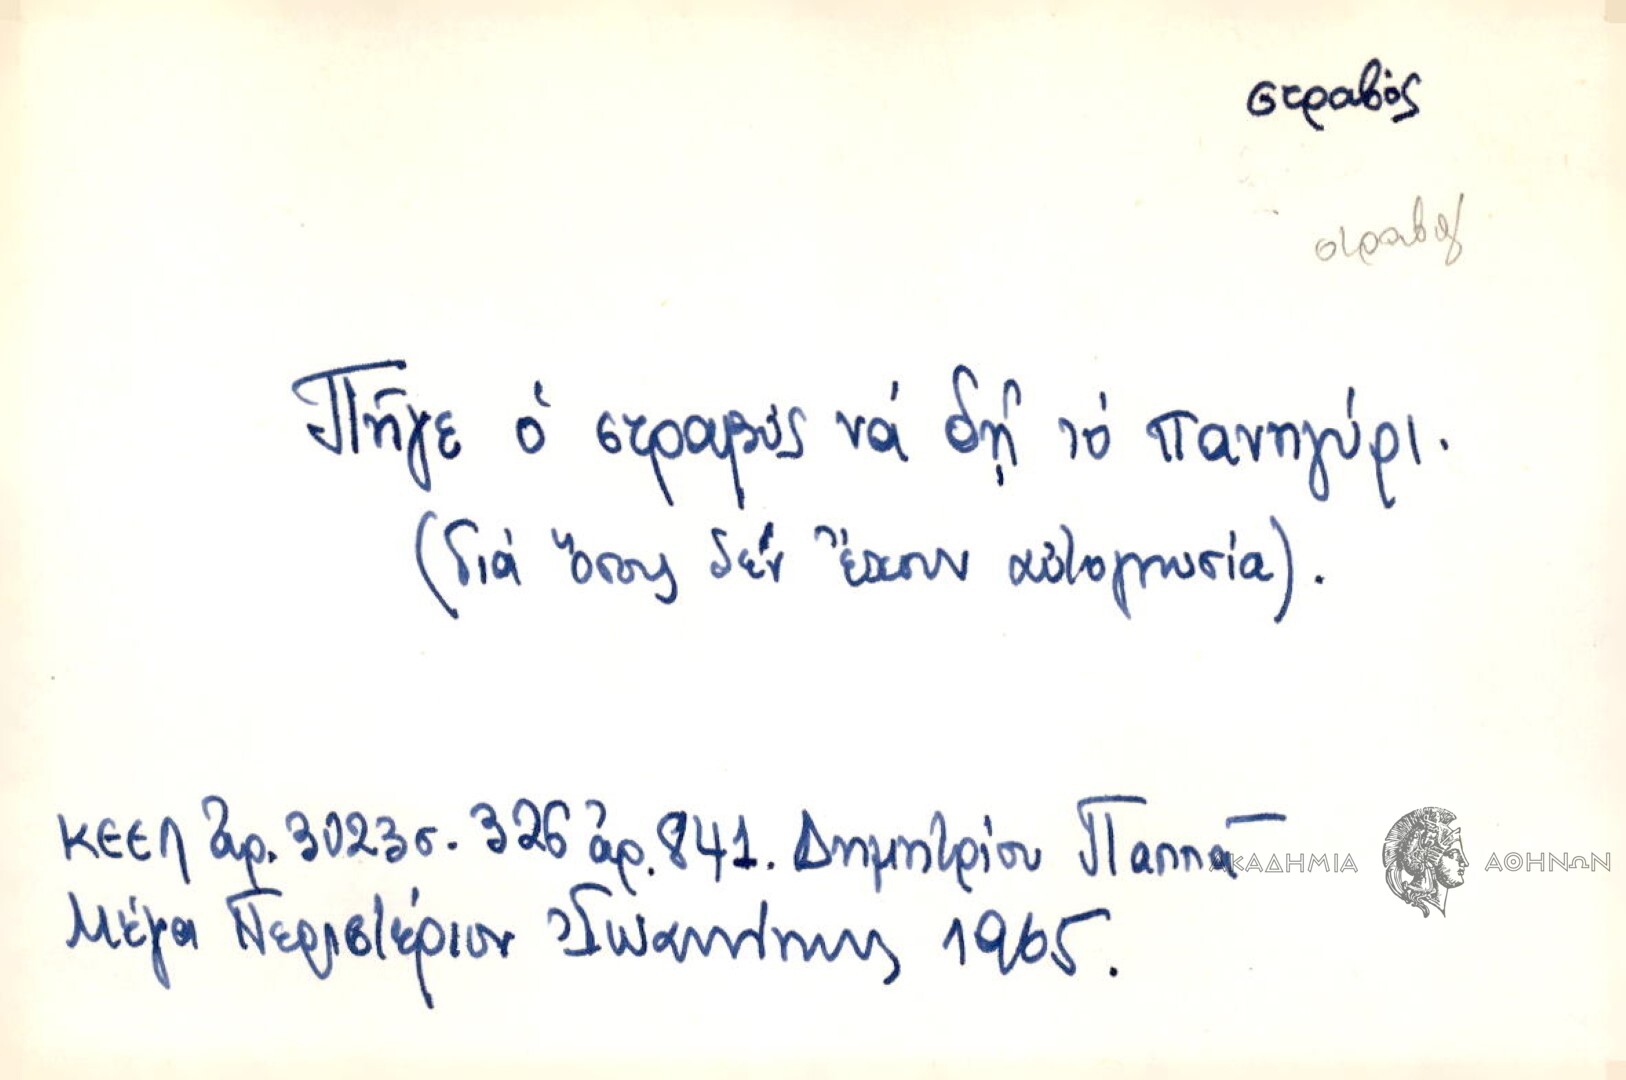 στραβός
στραβός
Πῆγε ὁ στραβός νά δῇ τό πανηγύρι.
(διά ὅσους δέν ἔχουν αὐτογνωσία).
ΚΕΕΛ ἀρ. 3023 σ. 326 ἀρ. 841. Δημητρίου Παππᾶ
ΑΚΑΔΗΜΙΑ ΑΘΗΝΩΝ
Μέγα Περιστέριον Ἰωαννίνων 1965.